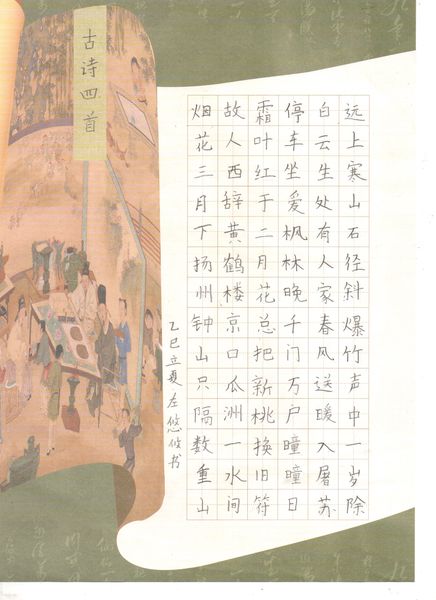 古诗四首
远上寒山石径斜爆竹声中一岁除
白云生处有人家春风送暖入屠苏
停车坐爱枫林晚千门万户曈曈日
霜叶红于二月花总把新桃换旧符
故人西辞黄鹤楼京口瓜洲一水间
烟花三月下扬州钟山只隔数重山
乙巳立夏左悠攸书